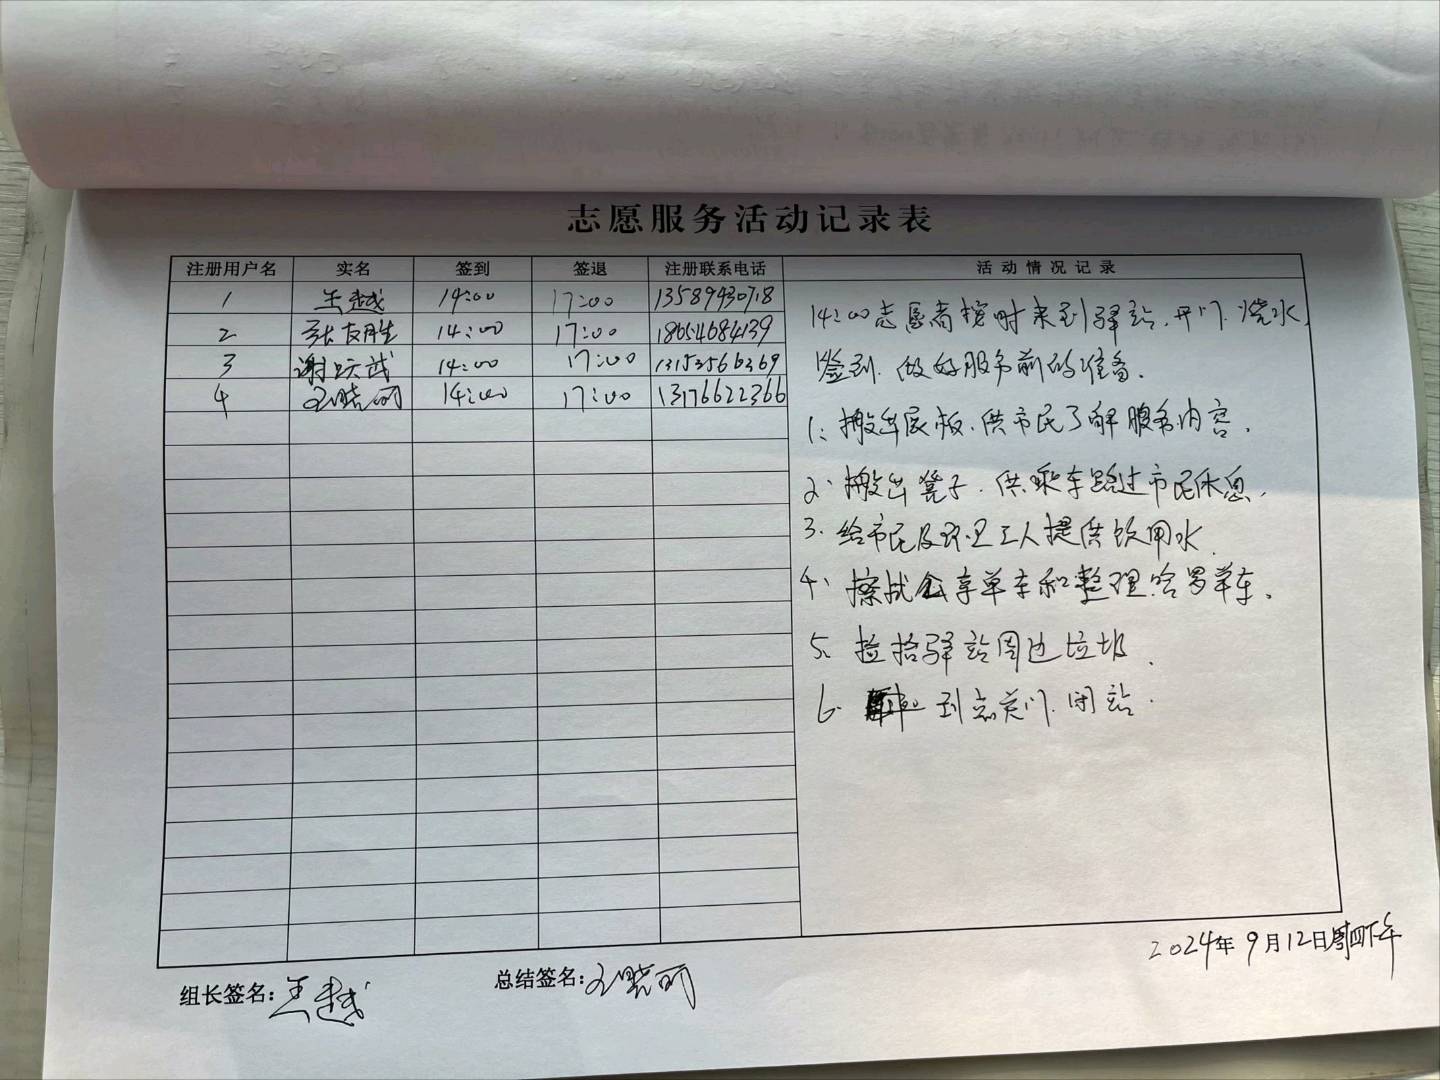 志愿服务活动记录表
注册用户名 实名 签到 签退 注册联系电话 活动情况记录
1 王越 14:00 17:00 13589430718
2 张友胜 14:00 17:00 18654684139
3 谢跃武 14:00 17:00 13153566369
4 王晓丽 14:00 17:00 13176622366
14:00志愿者按时来到驿站,开门.烧水,
签到.做好服务前的准备.
1、搬出展板.供市民了解服务内容.
2、搬出凳子.供乘车路过市民休息.
3.给市民及环卫工人提供饮用水.
4、擦拭公享单车和整理哈罗单车.
5、捡拾驿站周边垃圾.
6. 到点关门.闭站.
2024年9月12日周四下午
组长签名:王越 总结签名:王晓丽